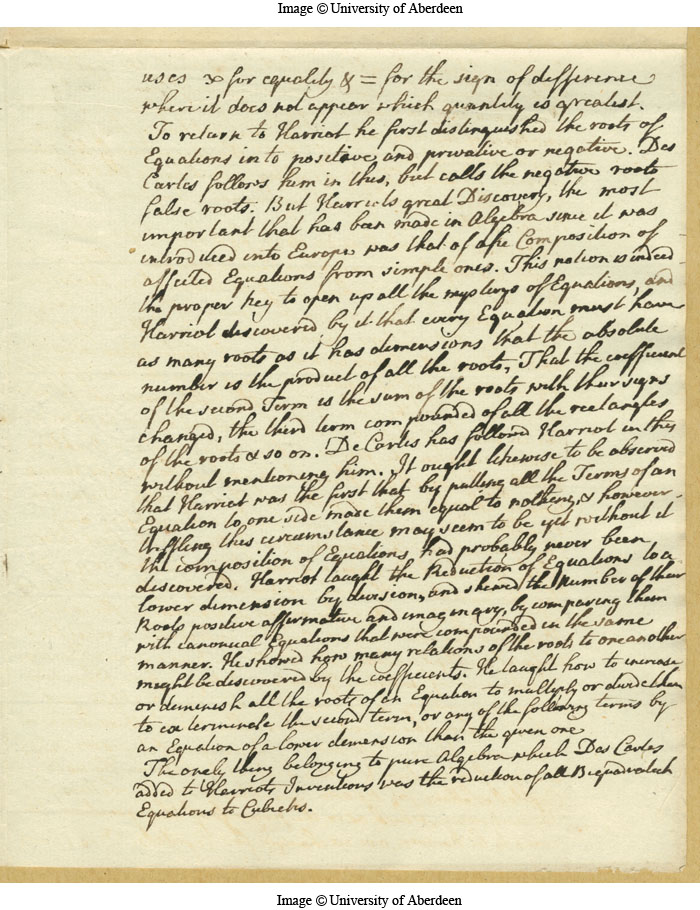 Image © University of Aberdeen
uses ∝ for equality & = for the sign of difference
where it does not appear which quantity is greatest.
To return to Harriot he first distinguished the roots of
Equations into positive and privative or negative. Des
Cartes follows him in this, but calls the negative roots
false roots. But Harriots great Discovery, the most
important that has been made in Algebra since it was
introduced into Europe was that of the Composition of
affected Equations from simple ones. This notion is indeed
the proper key to open up all the mysterys of Equations, and
Harriot discovered by it that every Equation must have
as many roots as it has demensions that the absolute
number is the product of all the roots, That the coefficient
of the second Term is the sum of the roots with their signs
changed, the third term compounded of all the rectangles
of the roots & so on. De Cartes has followed Harriot in this
without mentioning him. It ought likewise to be observed
that Harriot was the first that by putting all the Terms of an
Equation to one side made them equal to nothing, & however
triffling this circumstance may seem to be yet without it
the composition of Equations had probably never been
discovered. Harriot taught the Reduction of Equations to a
lower demension by division, and shewed the Number of their
Roots positive affirmative and imaginary, by comparing them
with canonical Equations that were compounded in the same
manner. He showed how many relations of the roots to one another
might be discovered by the coefficients. He taught how to increase
or demenish all the roots of an Equation to multiply or divide them
to exterminate the second term, or any of the following terms by
an Equation of a lower demension than the given one
The onely thing belonging to pure Algebra which Des Cartes
added to Harriots Inventions was the reduction of all Biquadratick
Equations to Cubicks.
Image © University of Aberdeen